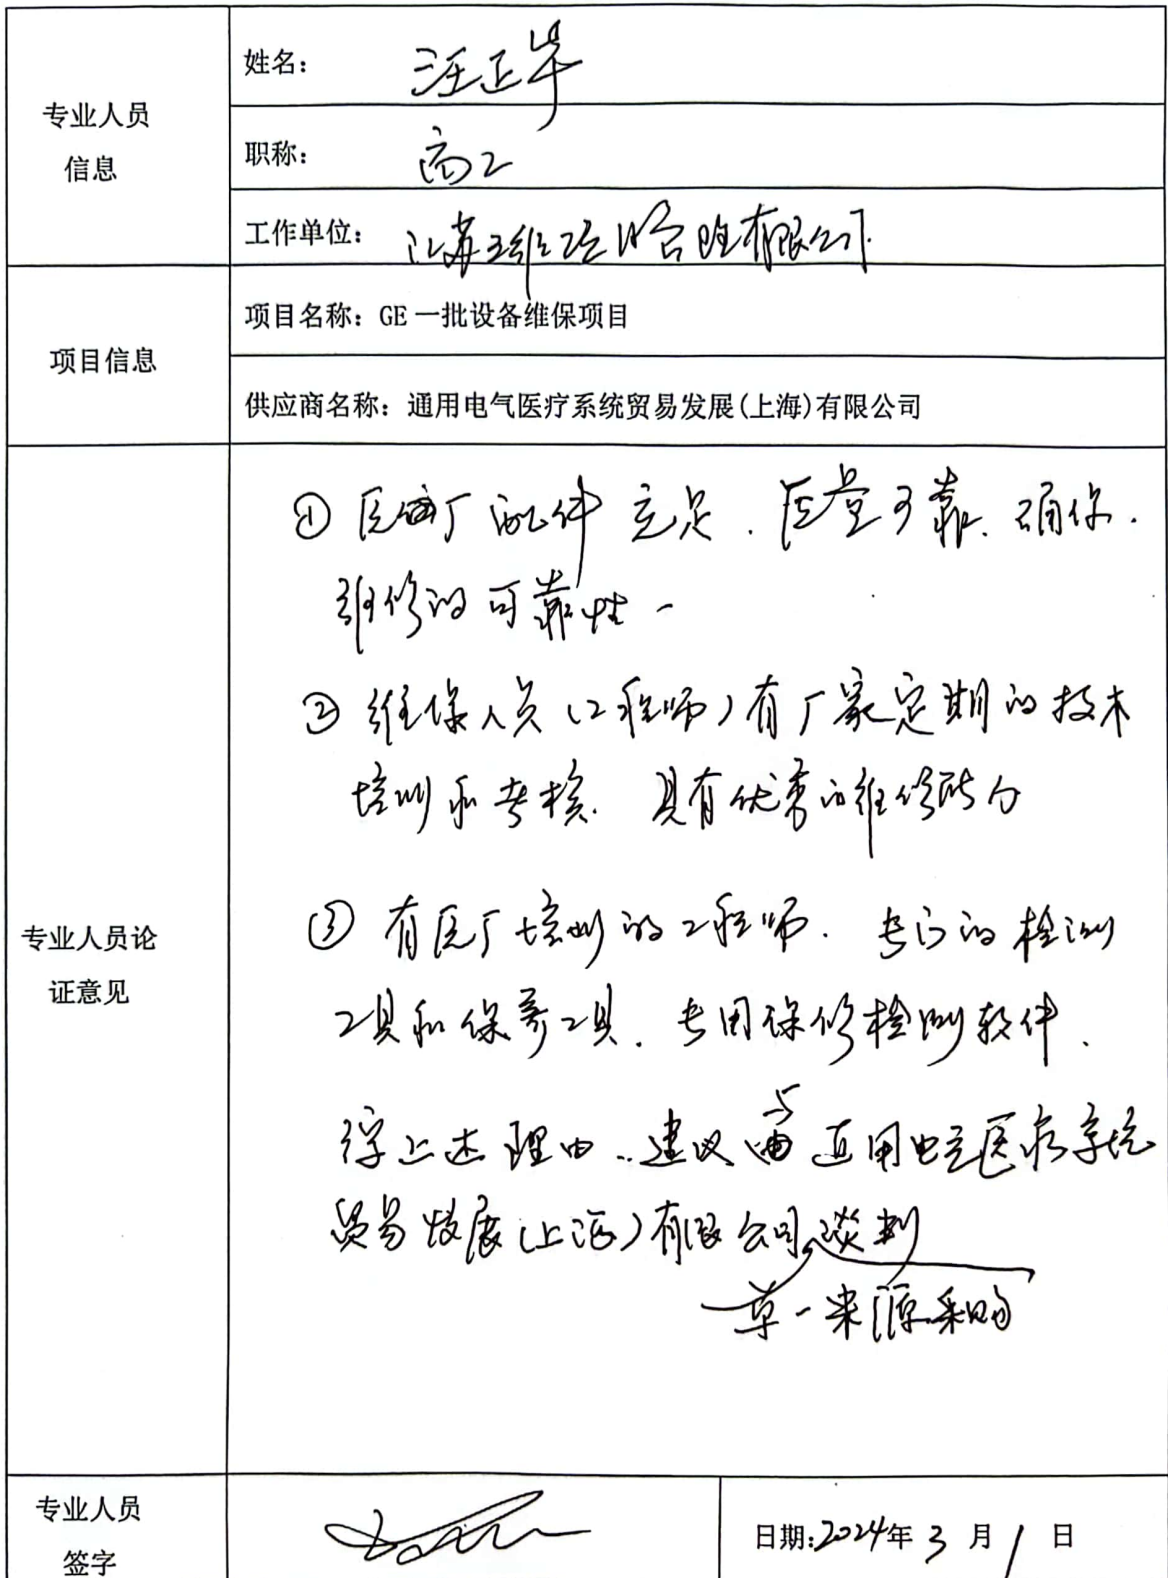 专业人员
信息
姓名: 汪正华
职称: 高工
工作单位: 江苏 有限公司
项目信息
项目名称: GE一批设备维保项目
供应商名称: 通用电气医疗系统贸易发展(上海)有限公司
专业人员论
证意见
① 原厂配件充足. 质量可靠. 确保.
维修的可靠性
② 维保人员(工程师)有厂家定期的技术
培训和考核. 具有优秀的维修能力
③ 有原厂培训的工程师. 专门的检测
工具和保养工具. 专用保修检测软件.
综上述理由.. 建议与通用电气医疗系统
贸易发展(上海)有限公司谈判
单一来源采购
专业人员
签字
日期:2024年3月1日